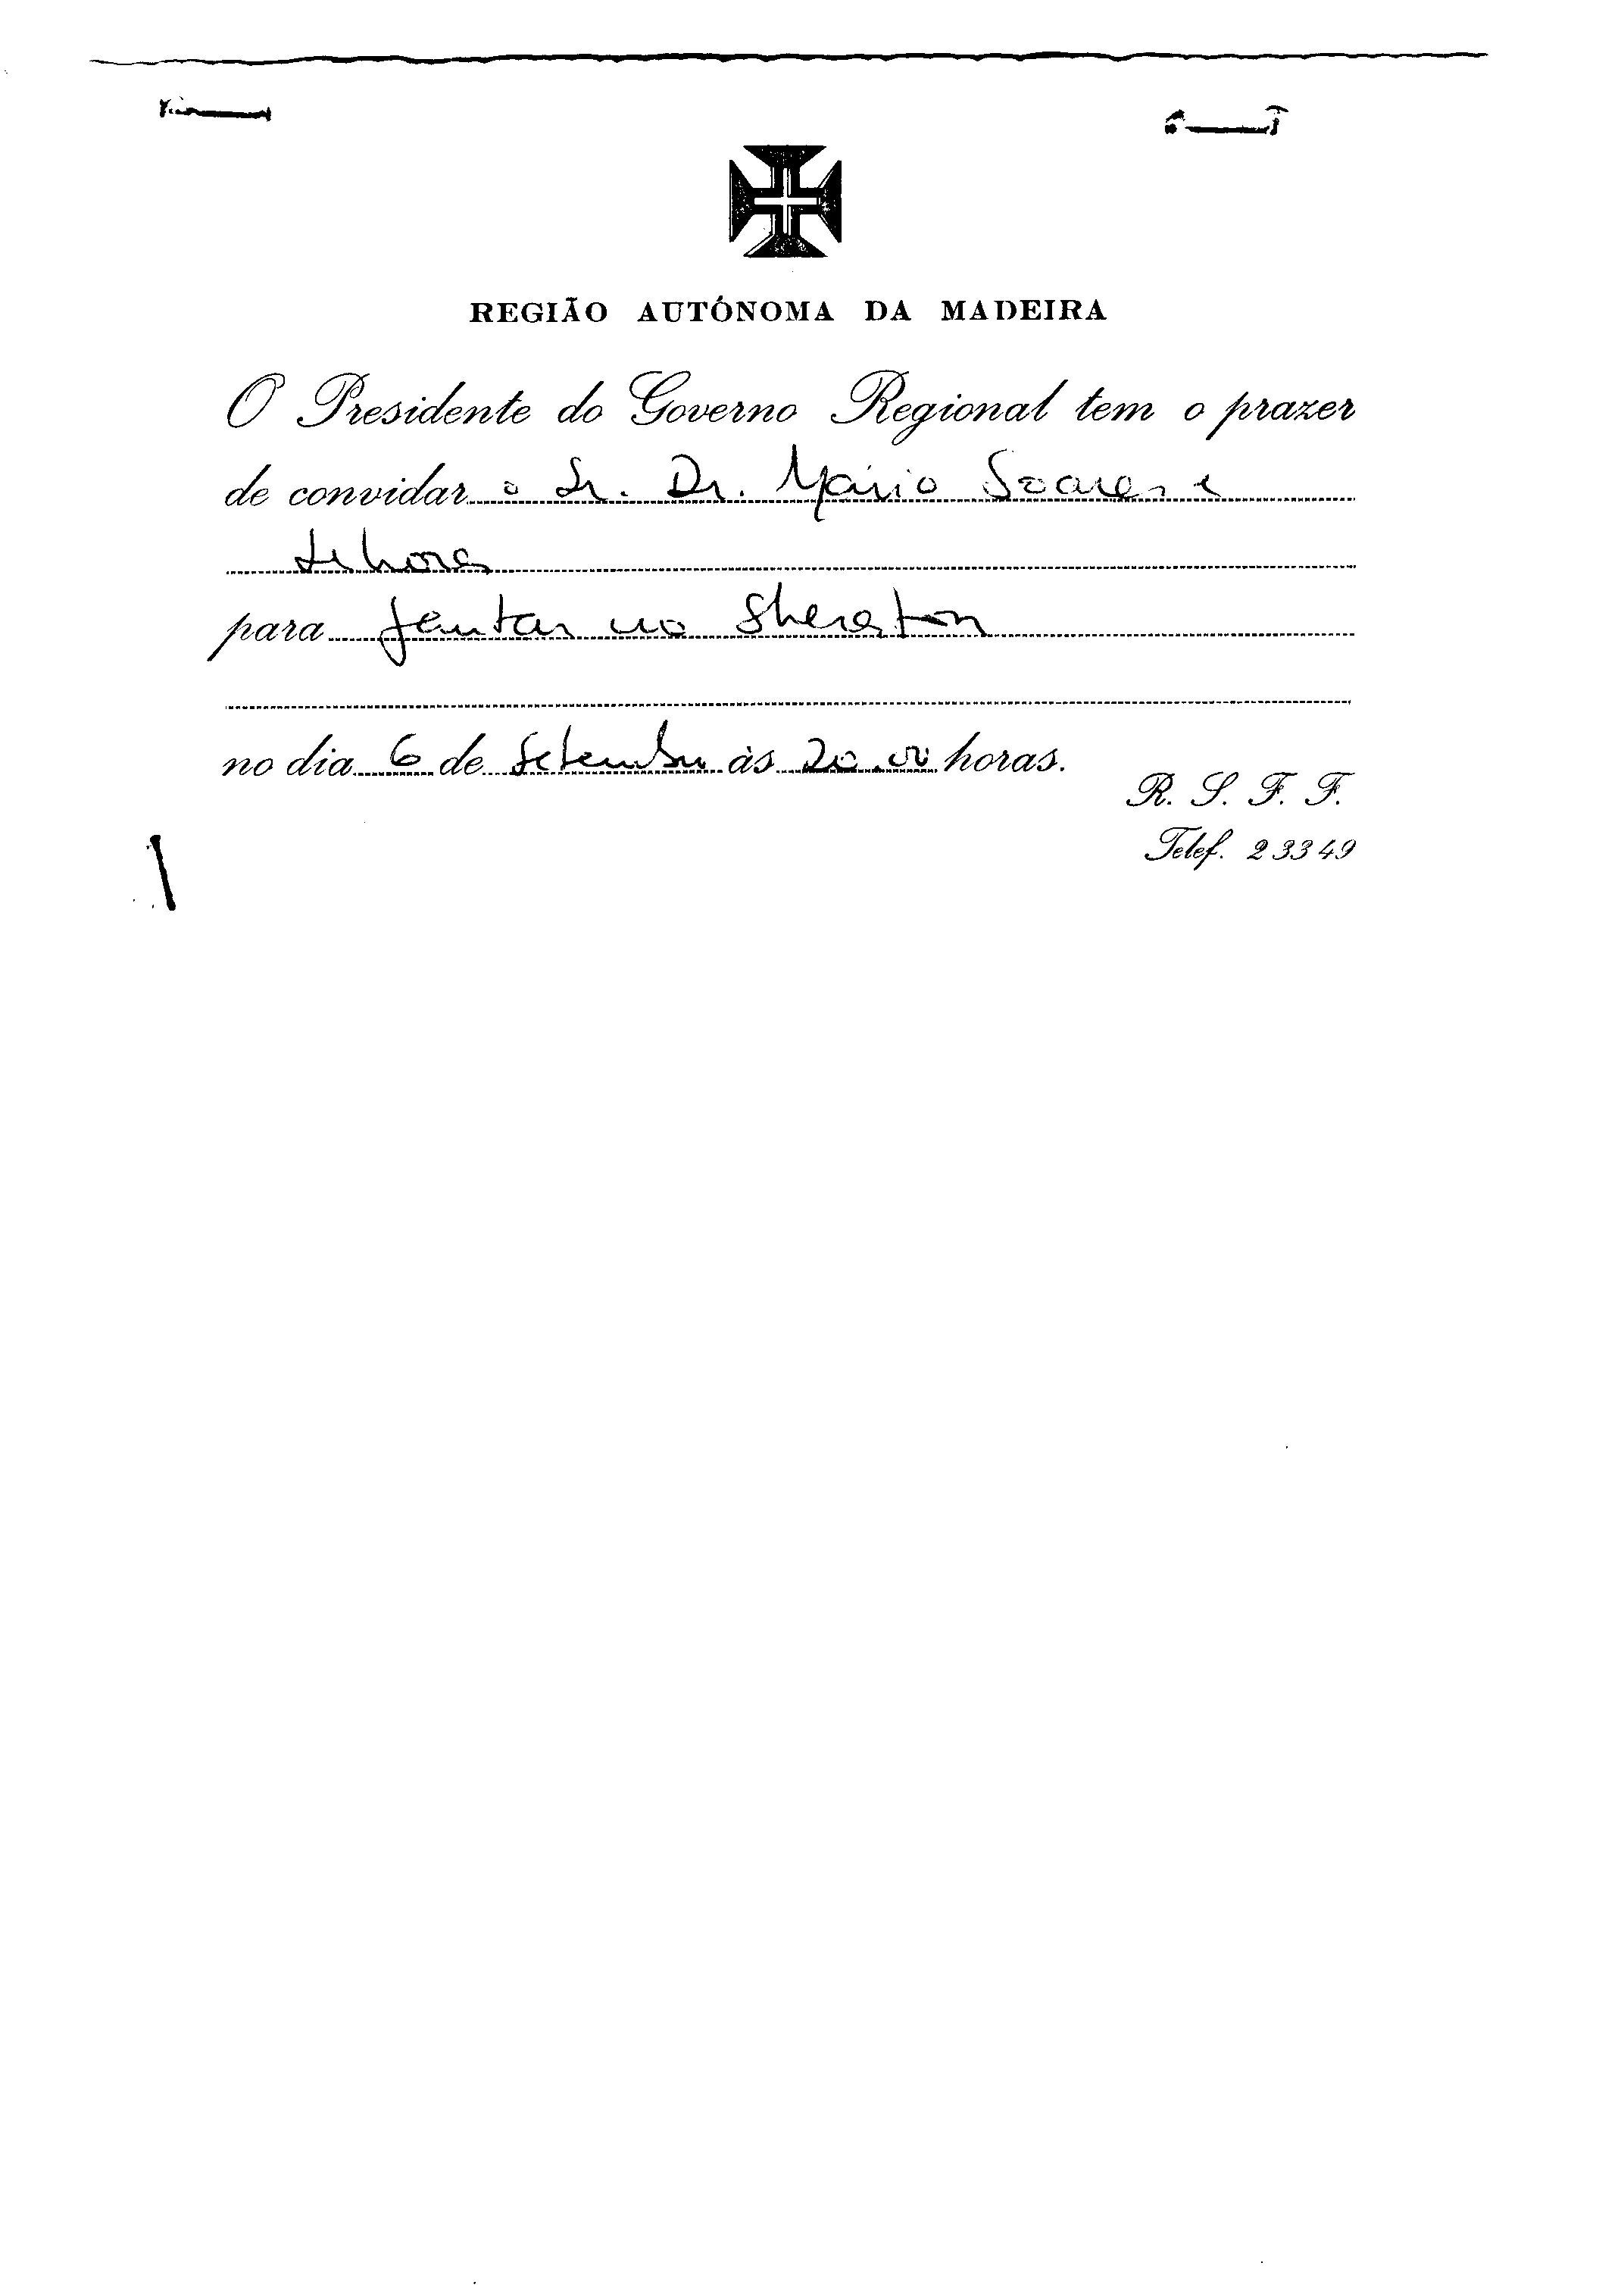 REGIÃO AUTÓNOMA DA MADEIRA
O Presidente do Governo Regional tem o prazer
de convidar o Sr. Dr. Mário Soares e
Senhora
para jantar no Sheraton
no dia 6 de Setembro às 20.00 horas.
R. S. F. F.
Telef. 2 33 49